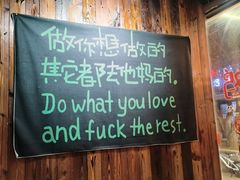 做你想做的
其它都去他妈的.
Do what you love
and fuck the rest.